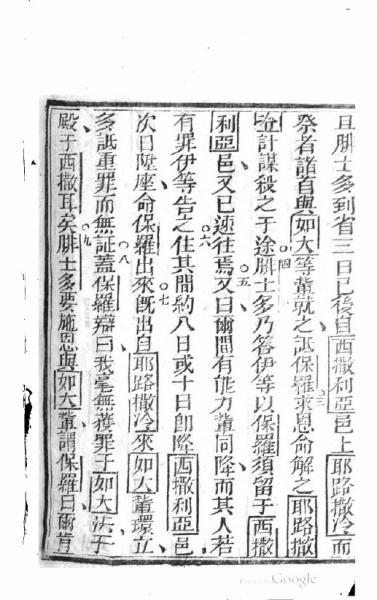 且腓士多到省三日已後自西撒利亞邑上耶路撒冷而
祭者諸首與如大等輩就之詆保羅求恩命解之耶路撒
冷計謀殺之于途腓士多乃答伊等以保羅須留于西撒
利亞邑又已速往焉又曰爾間有能力輩同降而其人若
有罪伊等告之住其間約八日或十日即降西撒利亞邑
次日陞座命保羅出來旣出自耶路撒冷來如大輩環立
多詆重罪而無証蓋保羅辯曰我毫無獲罪于如大法于
殿于西撒耳矣腓士多要施恩與如大輩謂保羅曰爾肯
三
四
五
六
七
八
九
Google